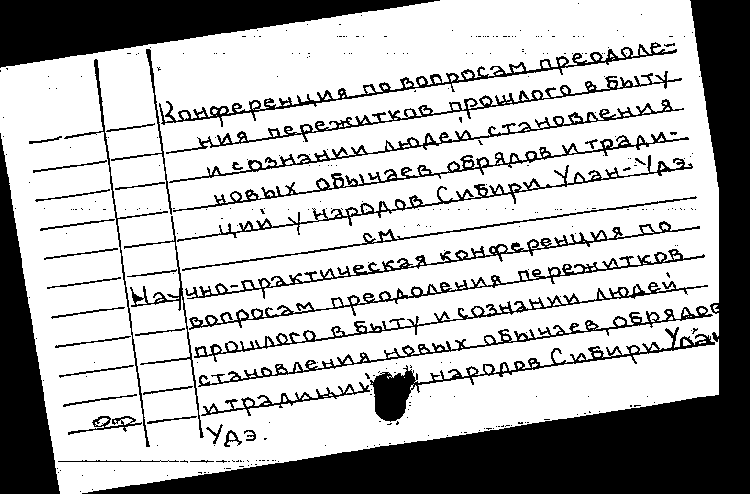 Конференция по вопросам преодоле-
ния пережитков прошлого в быту
и сознании людей, становления
новых обычаев, обрядов и тради-
ций у народов Сибири. Улан-Удэ.
см.
Научно-практическая конференция по
вопросам преодоления пережитков
прошлого в быту и сознании людей,
становления новых обычаев, обрядов
и традиций народов Сибири Улан
Удэ.